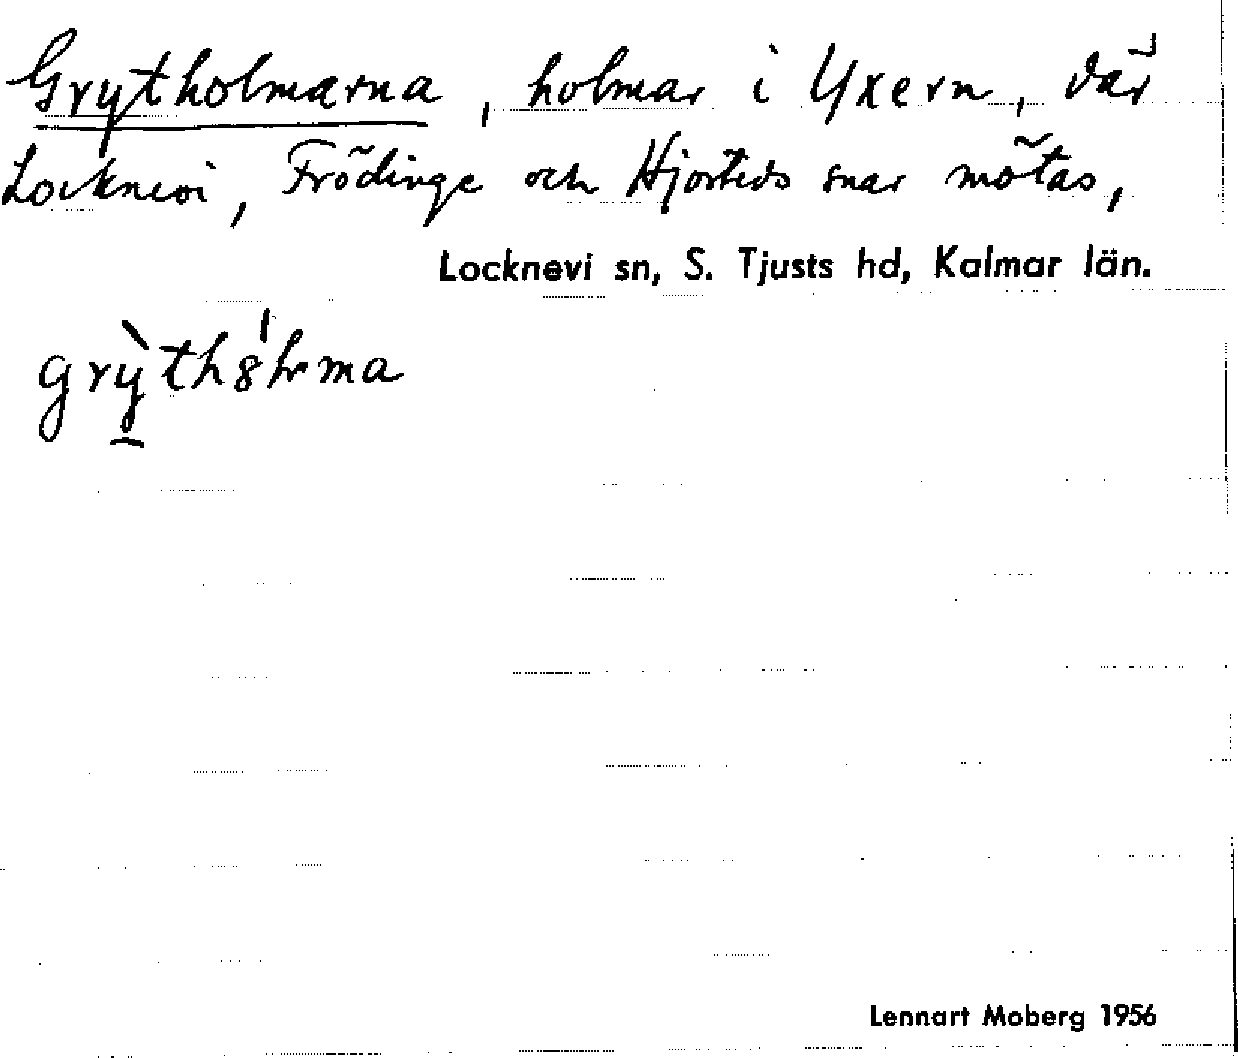 Grytholmarna, holmar i Yxern, där
Locknevi, Frödinge och Hjorteds snar mötas,
Locknevi sn, S. Tjusts hd, Kalmar län.
Lennart Moberg 1956